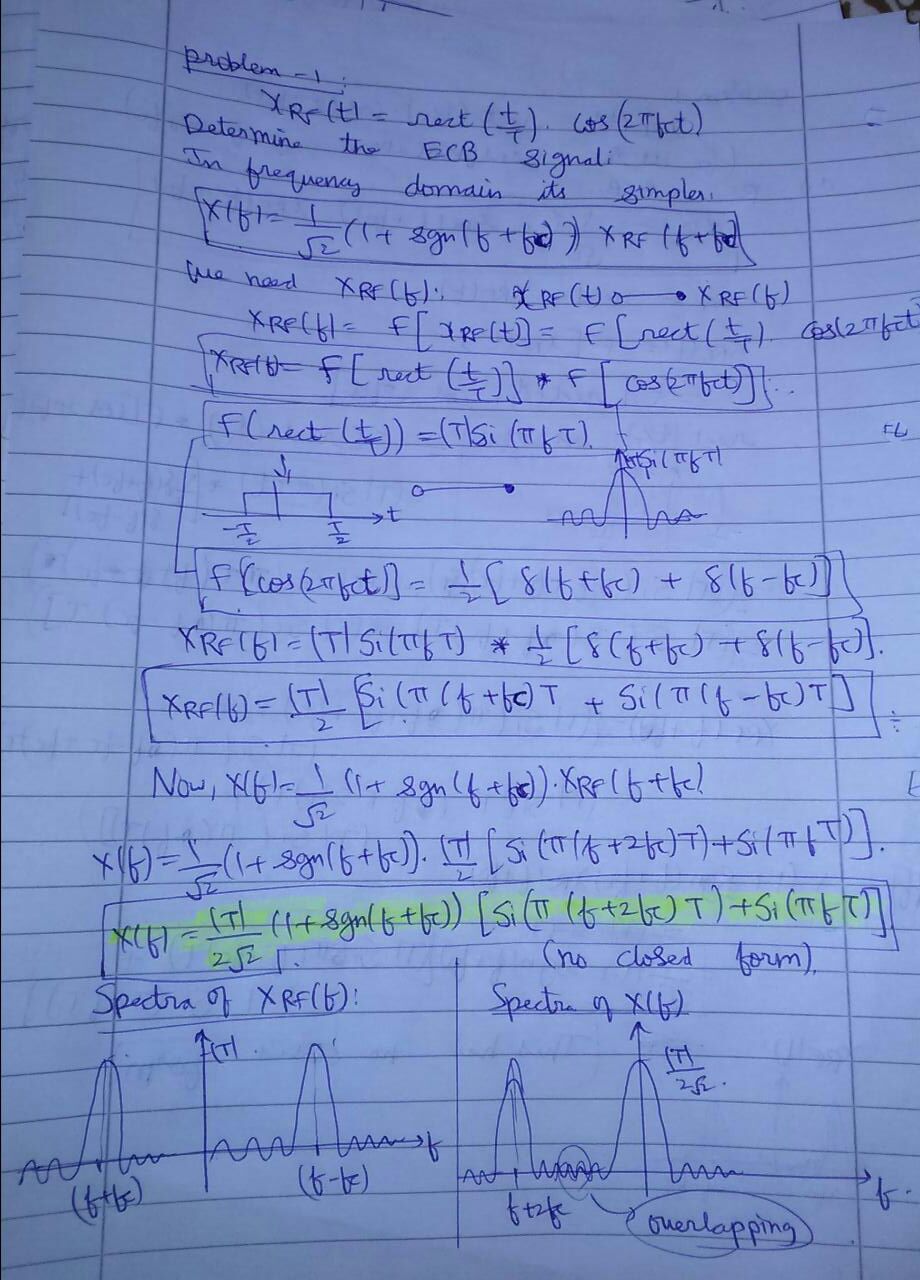 problem - 1:
x_RF(t) = rect(t/T). cos(2πfct)
Determine the ECB signal:
In frequency domain its simpler.
X(f) = 1/√2 (1 + sgn(f + fc)) X_RF(f + fc)
we need X_RF(f). x_RF(t) o—• X_RF(f)
X_RF(f) = F[x_RF(t)] = F[rect(t/T). cos(2πfct)
X_RF(f) = F[rect(t/T)] * F[cos(2πfct)]
F(rect(t/T)) = |T| Si(πfT)
1
|T| Si(πfT)
-T/2 T/2 t
F[cos(2πfct)] = 1/2 [δ(f+fc) + δ(f-fc)]
X_RF(f) = |T| Si(πfT) * 1/2 [δ(f+fc) + δ(f-fc)].
X_RF(f) = |T|/2 [Si(π(f+fc)T + Si(π(f-fc)T]
Now, X(f) = 1/√2 (1 + sgn(f+fc)). X_RF(f+fc)
X(f) = 1/√2 (1 + sgn(f+fc)). |T|/2 [Si(π(f+2fc)T) + Si(πfT)].
X(f) = |T|/2√2 (1 + sgn(f+fc)) [Si(π(f+2fc)T) + Si(πfT)]
(no closed form).
Spectra of X_RF(f):
|T|
f
(f+fc) (f-fc)
Spectra of X(f)
|T|/2√2.
f.
f+2fc
overlapping